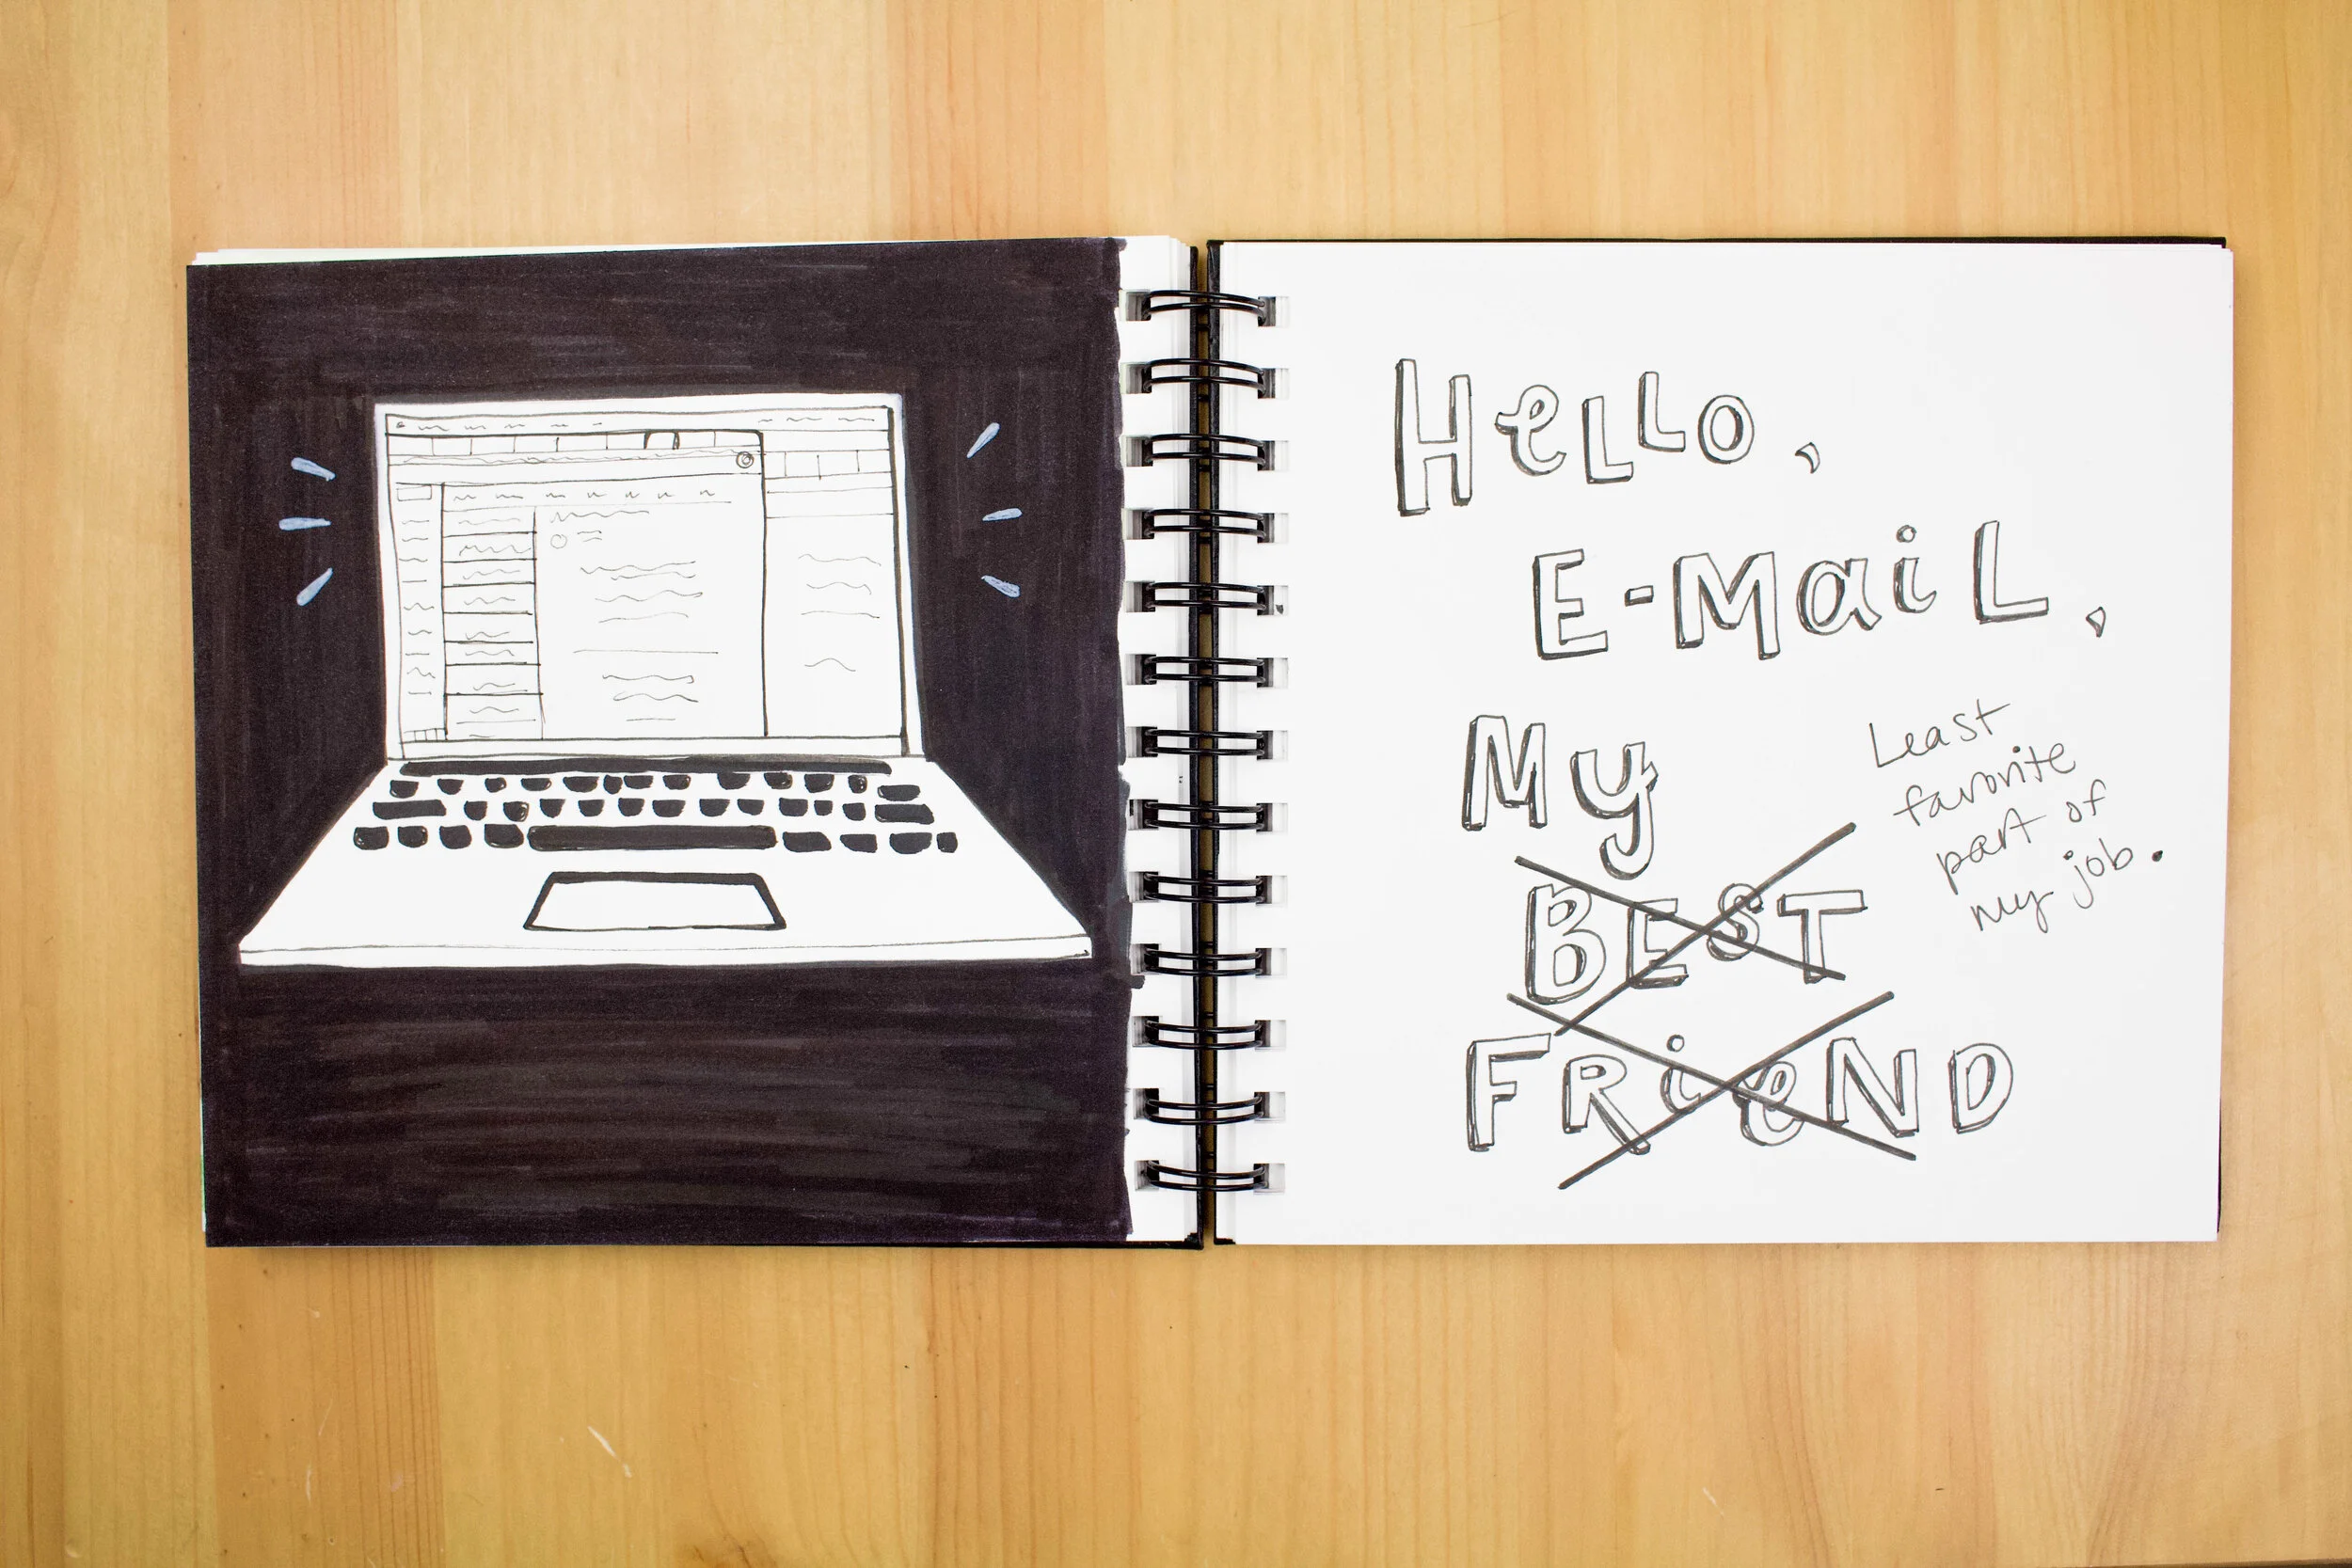 Hello,
E-Mail,
My
Least
favorite
part of
my job.
BEST
FRieND